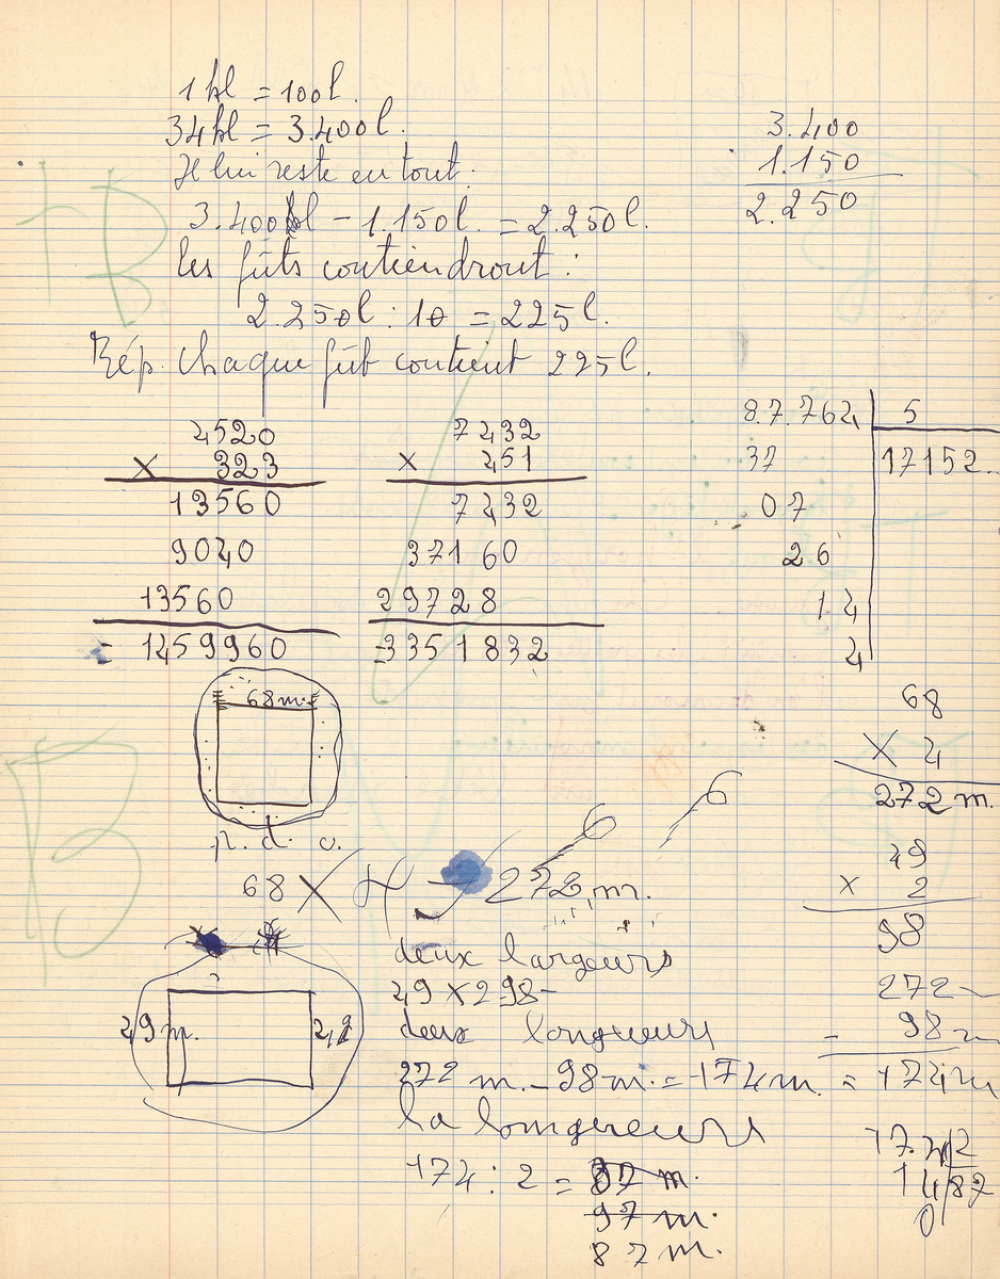 1 hl = 100 l.
34 hl = 3.400 l.
Il lui reste en tout :
3.400 l - 1.150 l. = 2.250 l.
les fûts contiendront :
2.250 l : 10 = 225 l.
Rép. Chaque fût contient 225 l.
3.400
1.150
2.250
4520
× 323
13560
9040
13560
= 1459960
7432
× 451
7432
37160
29728
= 3351832
87.764 | 5
37 | 17152.
07
26
14
4
68 m.
68
× 4
272 m.
p. d. c.
6
6
68 × 4 = 272 m.
49
× 2
98
deux largeurs
49 × 2 98 -
49 m.
deux longueurs
272 m. - 98 m. = 174 m.
272
- 98
= 174 m
la longereurs
174 : 2 = 87 m.
97 m.
87 m.
174 | 2
14 | 87
0